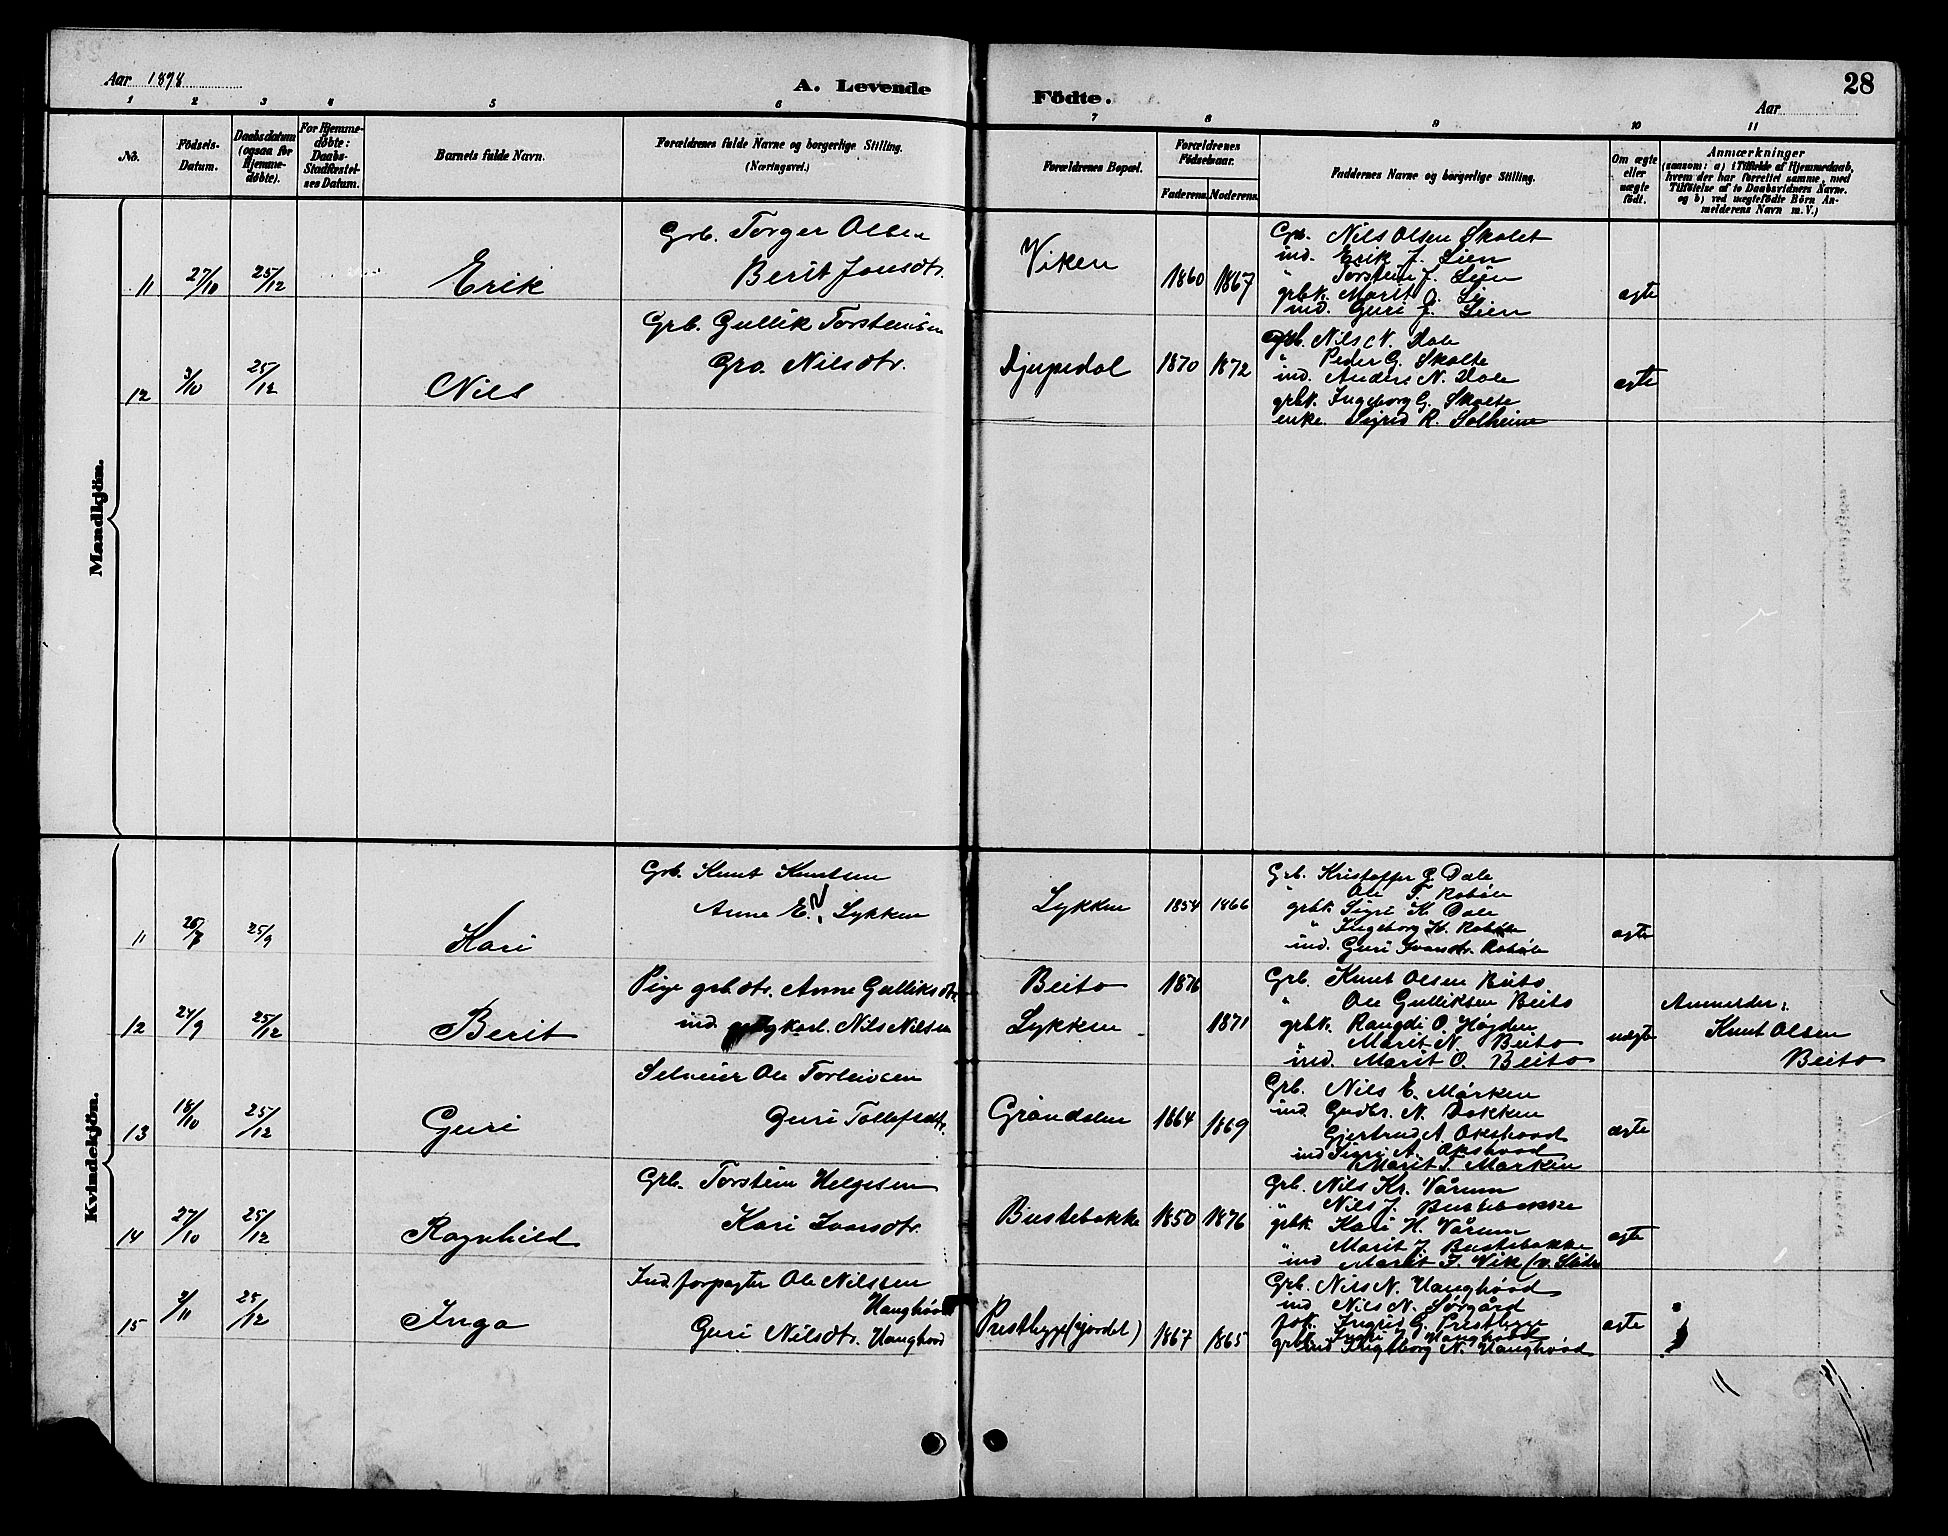 Aar 1898
A. Levende
Födte.
28
Aar
1 2 3 4 5 6 7 8 9 10 11
No.
Födsels-
Datum.
Daabsdatum
(ogsaa for
Hjemme-
döbte).
For Hjemme-
döbte:
Daabs-
Stadfæstel-
ses Datum.
Barnets fulde Navn.
Forældrenes fulde Navne og borgerlige Stilling.
(Næringsvei.)
Forældrenes Bopæl.
Forældrenes
Födselsaar.
Faderens Moderens
Faddernes Navne og borgerlige Stilling.
Om ægte
eller
uægte
födt.
Anmærkninger
(saasom: a) i Tilfælde af Hjemmedaab,
hvem der har forrettet samme, med
Tilföielse af to Daabsvidners Navne.
og b) ved uægtefödte Börn An-
melderens Navn m. V.)
Mandkjön.
11 27/10 25/12 Erik
Grb. Torger Olsen
Berit Jonsdtr.
Viken 1860 1867
Grb. Nils Olsen Skolet
ind. Erik J. Lien
" Torstein J. Lien
grbk. Marit O. Li
ind. Guri J. Lien
ægte
12 3/10 25/12 Nils
Grb. Gullik Torsteinsen
Gro. Nilsdtr.
Djupedal 1870 1872
Grb. Nils N. Dale
" Peder G. Skolte
ind. Anders N. Dale
grbk. Ingeborg G. Skolte
enke. Sigrid R. Solheim
ægte
Kvindekjön.
11 25/9 Kari
Grb. Knut Knutsen
Anne E. Lykken
Lykken 1854 1866
Grb. Kristoffer G. Dale
" Ole T. Robøle
grbk. Sigri K. Dale
" Ingeborg H. Robøle
ind. Guri Ivarsdtr. Robøle
ægte
12 24/9 25/12 Berit
Pige grb.dtr. Anne Gulliksdtr.
ind. ungkarl. Nils Nilsen
Beito 1876
Lykken 1871
Grb. Knut Olsen Beito
" Ole Gulliksen Beito
grbk. Rangdi O. Højden
" Marit N. Beito
ind. Marit O. Beito
uægte
Anmelder:
Knut Olsen
Beito
13 18/10 25/12 Guri
Selveier Ole Torleivsen
Guri Tollefsdtr.
Grøndalen 1864 1869
Grb. Nils E. Mørken
ind. Gudbr. N. Bakken
Gjertrud A. Okshovd
ind Sigri A. Okshovd
Marit T. Mørken
ægte
14 27/10 25/12 Ragnhild
Grb. Torstein Helgesen
Kari Ivarsdtr.
Bustebakke 1850 1876
Grb. Nils Kr. Vårum
" Nils J. Bustebakke
grbk. Kari H. Vårum
" Marit J. Bustebakke
ind Marit I. Wik (v. Slidre
ægte
15 3/11 25/12 Inga
Ind. forpagter Ole Nilssen
Haughövd
Guri Nilsdtr. Haughövd
Presthygge (Gjordel) 1867 1865
Grb. Nils N. Haughövd
ind Nils N. Sørgård
fok. Ingrid G. Presthygge
grbk. Inger J. Haughövd
ind Ingeborg N. Haughövd
ægte